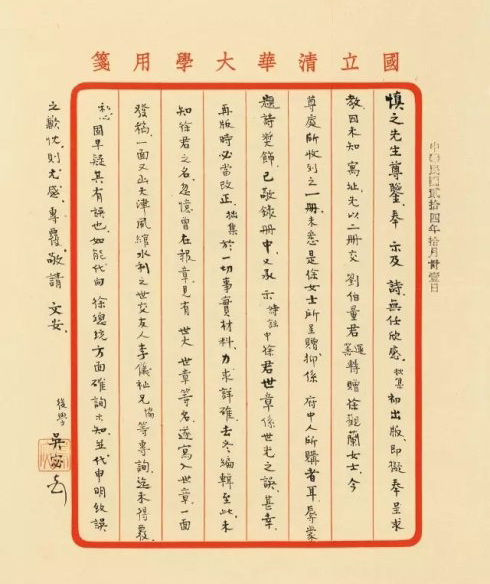 國立清華大學用箋
中華民國貳拾四年拾月卅壹日
慎之先生尊鑒奉 示及 詩無任欣感拙集初出版即擬奉呈求
教因未知 寓址先以二冊交 劉伯量君運籌轉贈徐觀蘭女士今
尊處所收到之一冊未悉是徐女士所呈贈抑係 府中人所購者耳辱蒙
題詩獎飾已敬錄冊中又承 示詩註中徐君世章係世光之誤甚幸
再版時必當改正拙集於一切事實材料力求詳確去冬編輯至此未
知徐君之名忽憶曾在報章見有 世光 世章等名遂寫入世章一面
發稿一面又函天津風縮水利之世交友人李儀祉兄協等專詢迄未得覆
私心固早疑其有誤也如能代向 徐總統方面確詢示知並代申明致誤
之歉忱則尤感專覆敬請 文安
後學 吳宓